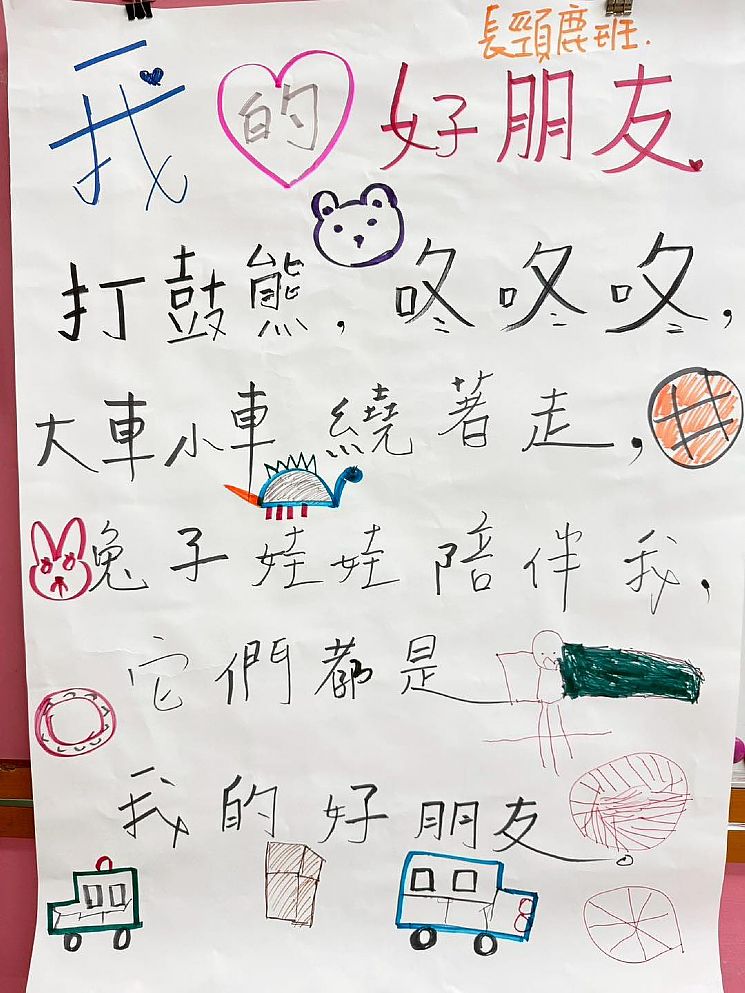 長頸鹿班.
我的好朋友
打鼓熊，咚咚咚，
大車小車繞著走，
兔子娃娃陪伴我，
它們都是
我的好朋友。